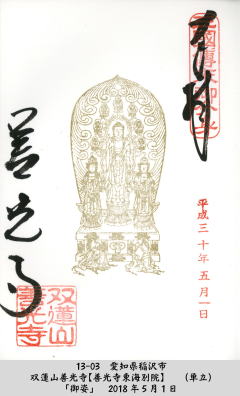 奉拝
平成三十年五月一日
善光寺
双蓮山
善光寺
13-03 愛知県稲沢市
双蓮山善光寺【善光寺東海別院】 (単立)
「御姿」 2018年5月1日